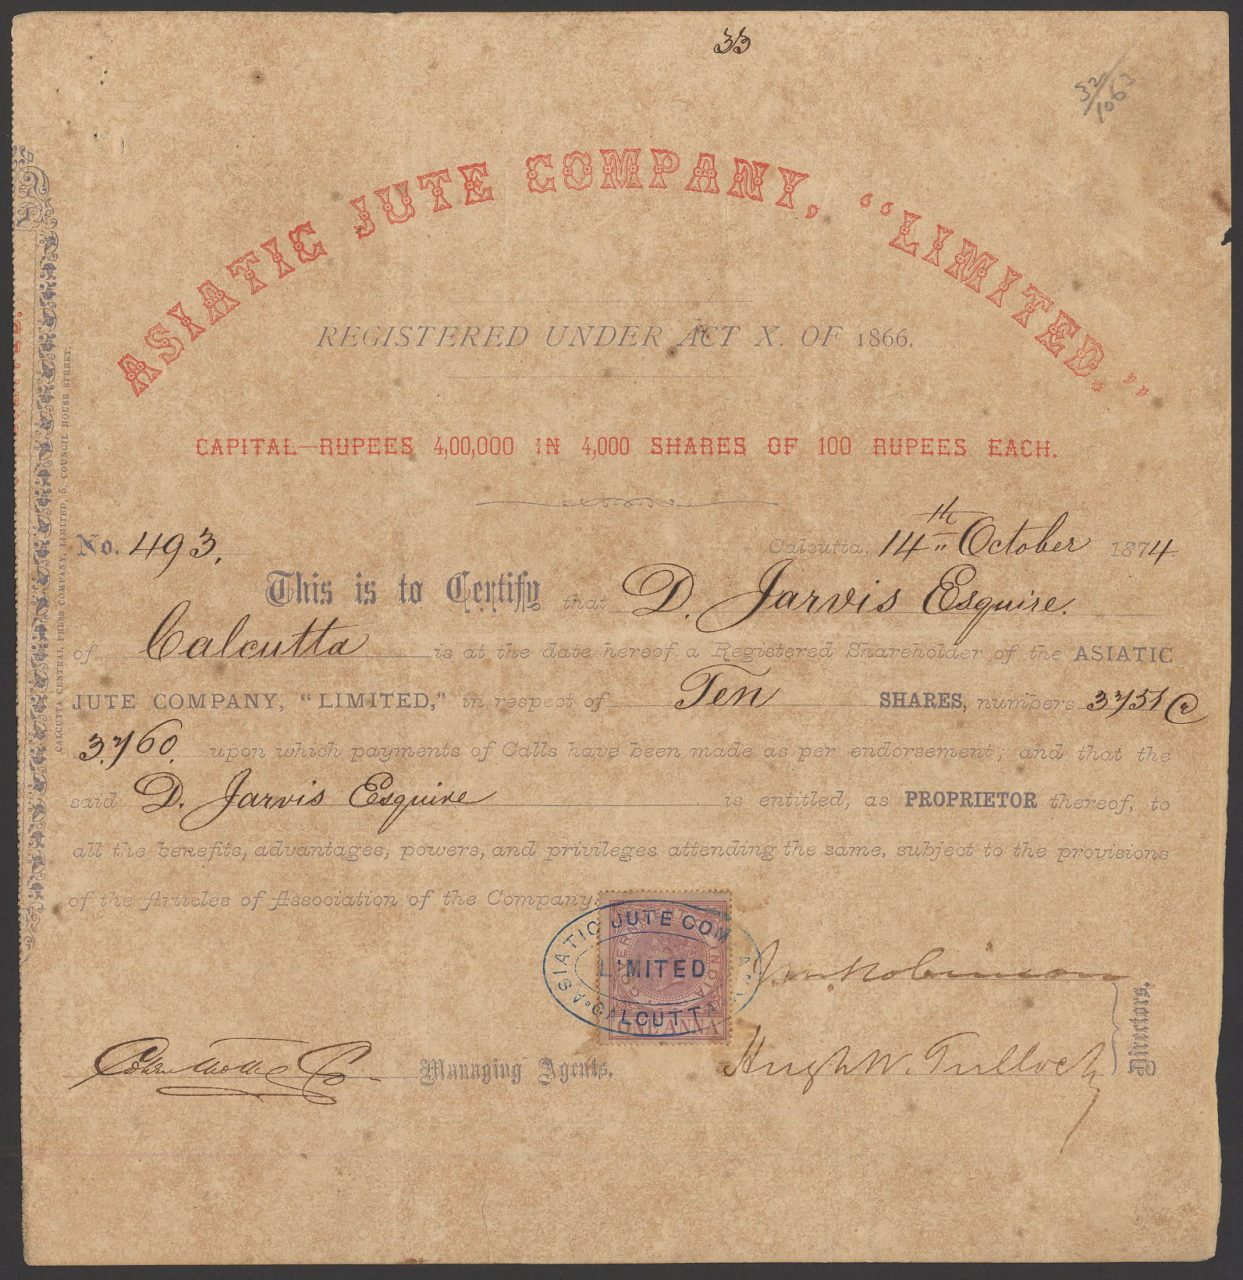 33
32/1063
ASIATIC JUTE COMPANY, “LIMITED,”
REGISTERED UNDER ACT X. OF 1866.
CAPITAL—RUPEES 4,00,000 IN 4,000 SHARES OF 100 RUPEES EACH.
No. 493. Calcutta, 14th October 1874
This is to Certify that D. Jarvis Esquire.
of Calcutta is at the date hereof a Registered Shareholder of the ASIATIC
JUTE COMPANY, “LIMITED,” in respect of Ten SHARES, numbers 3751 @
3760 upon which payments of Calls have been made as per endorsement; and that the
said D. Jarvis Esquire is entitled, as PROPRIETOR thereof, to
all the benefits, advantages, powers, and privileges attending the same, subject to the provisions
of the Articles of Association of the Company.
ASIATIC JUTE COMPANY
LIMITED
CALCUTTA
INDIA
ONE ANNA
Robinson
Hugh W. Tulloch
Directors.
& Co
Managing Agents.
CALCUTTA CENTRAL PRESS COMPANY, LIMITED, 5, COUNCIL HOUSE STREET.